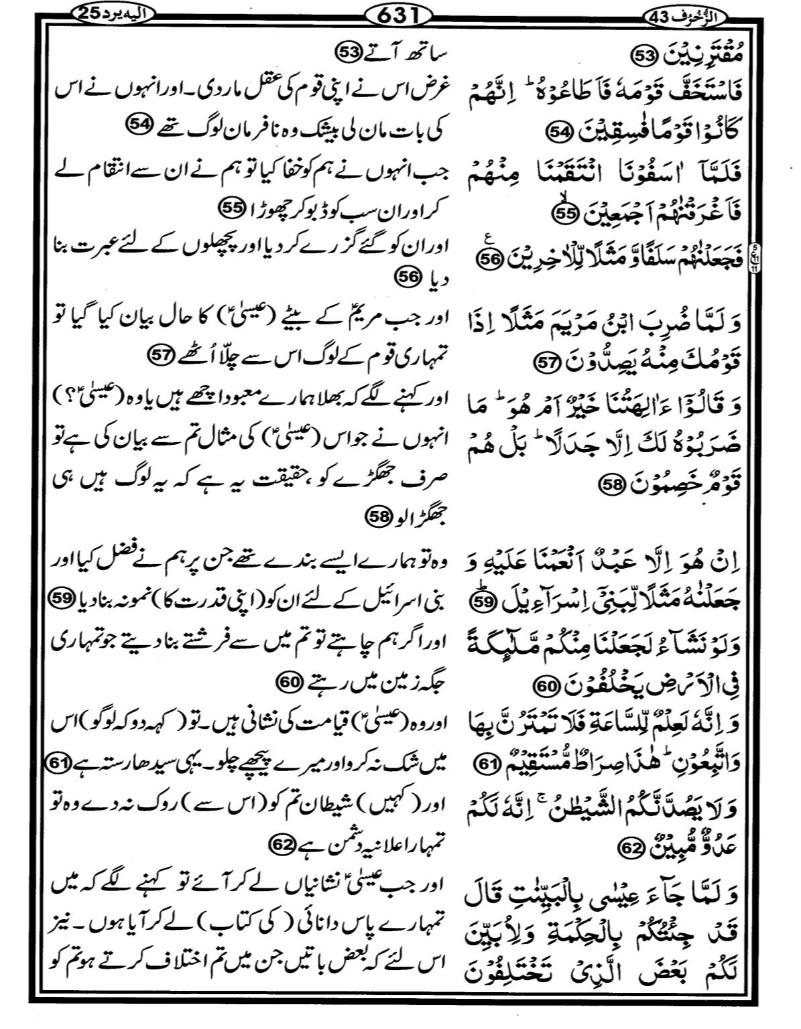 الزُّخرُف 43
631
الیه یرد 25
مُقْتَرِنِيْنَ 53
فَاسْتَخَفَّ قَوْمَهٗ فَاَطَاعُوْهُ ؕ اِنَّهُمْ
كَانُوْا قَوْمًا فٰسِقِيْنَ 54
فَلَمَّاۤ اٰسَفُوْنَا انْتَقَمْنَا مِنْهُمْ
فَاَغْرَقْنٰهُمْ اَجْمَعِيْنَ ۙ 55
فَجَعَلْنٰهُمْ سَلَفًا وَّ مَثَلًا لِّلْاٰخِرِيْنَ ع 56
وَ لَمَّا ضُرِبَ ابْنُ مَرْيَمَ مَثَلًا اِذَا
قَوْمُكَ مِنْهُ يَصِدُّوْنَ 57
وَ قَالُوْۤا ءَاٰلِهَتُنَا خَيْرٌ اَمْ هُوَ ؕ مَا
ضَرَبُوْهُ لَكَ اِلَّا جَدَلًا ؕ بَلْ هُمْ
قَوْمٌ خَصِمُوْنَ 58
اِنْ هُوَ اِلَّا عَبْدٌ اَنْعَمْنَا عَلَيْهِ وَ
جَعَلْنٰهُ مَثَلًا لِّبَنِيْۤ اِسْرَآءِيْلَ ؕ 59
وَلَوْ نَشَآءُ لَجَعَلْنَا مِنْكُمْ مَّلٰٓئِكَةً
فِي الْاَرْضِ يَخْلُفُوْنَ 60
وَ اِنَّهٗ لَعِلْمٌ لِّلسَّاعَةِ فَلَا تَمْتَرُنَّ بِهَا
وَاتَّبِعُوْنِ ؕ هٰذَا صِرَاطٌ مُّسْتَقِيْمٌ 61
وَلَا يَصُدَّنَّكُمُ الشَّيْطٰنُ ۚ اِنَّهٗ لَكُمْ
عَدُوٌّ مُّبِيْنٌ 62
وَ لَمَّا جَآءَ عِيْسٰى بِالْبَيِّنٰتِ قَالَ
قَدْ جِئْتُكُمْ بِالْحِكْمَةِ وَلِاُبَيِّنَ
لَكُمْ بَعْضَ الَّذِيْ تَخْتَلِفُوْنَ
ساتھ آتے 53
غرض اس نے اپنی قوم کی عقل مار دی۔ اور انہوں نے اس
کی بات مان لی بیشک وہ نافرمان لوگ تھے 54
جب انہوں نے ہم کو خفا کیا تو ہم نے ان سے انتقام لے
کر اور ان سب کو ڈبو کر چھوڑا 55
اور ان کو گئے گزرے کر دیا اور پچھلوں کے لئے عبرت بنا
دیا 56
اور جب مریمؑ کے بیٹے (عیسیٰؑ) کا حال بیان کیا گیا تو
تمہاری قوم کے لوگ اس سے چلّا اُٹھے 57
اور کہنے لگے کہ بھلا ہمارے معبود اچھے ہیں یا وہ (عیسیٰؑ؟)
انہوں نے جو اس (عیسیٰؑ) کی مثال تم سے بیان کی ہے تو
صرف جھگڑے کو، حقیقت یہ ہے کہ یہ لوگ ہیں ہی
جھگڑالو 58
وہ تو ہمارے ایسے بندے تھے جن پر ہم نے فضل کیا اور
بنی اسرائیل کے لئے ان کو (اپنی قدرت کا) نمونہ بنا دیا 59
اور اگر ہم چاہتے تو تم میں سے فرشتے بنا دیتے جو تمہاری
جگہ زمین میں رہتے 60
اور وہ (عیسیٰؑ) قیامت کی نشانی ہیں۔ تو (کہہ دو کہ لوگو) اس
میں شک نہ کرو اور میرے پیچھے چلو۔ یہی سیدھا رستہ ہے 61
اور (کہیں) شیطان تم کو (اس سے) روک نہ دے وہ تو
تمہارا علانیہ دشمن ہے 62
اور جب عیسیٰؑ نشانیاں لے کر آئے تو کہنے لگے کہ میں
تمہارے پاس دانائی (کی کتاب) لے کر آیا ہوں۔ نیز
اس لئے کہ بعض باتیں جن میں تم اختلاف کرتے ہو تم کو